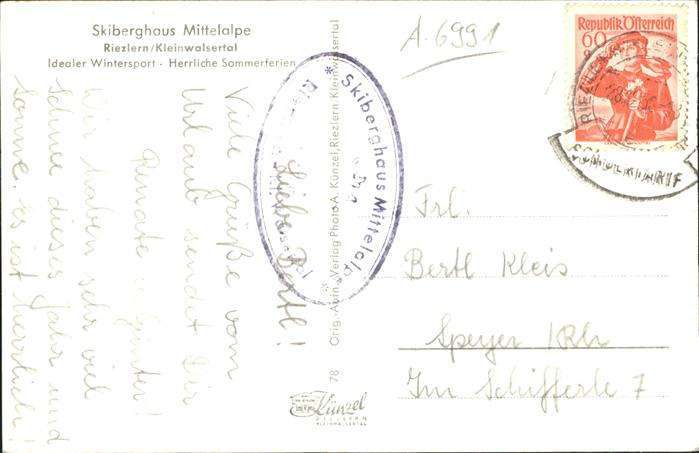 Skiberghaus Mittelalpe
Riezlern/Kleinwalsertal
Idealer Wintersport - Herrliche Sommerferien
A-6991
Republik Österreich
60
Skiberghaus Mittelalpe
Liebe Bertl!
Viele Grüße vom
Urlaub sendet Dir
Renate u. Günter!
Wir haben sehr viel
Schnee dieses Jahr und
Sonne, es ist herrlich!
78 Orig.-Aufn. Verlag Photo A. Künzel, Riezlern Kleinwalsertal
Künzel
RIEZLERN
KLEINWALSERTAL
Frl.
Bertl Kleis
Speyer /Rh
Im Schifferle 7